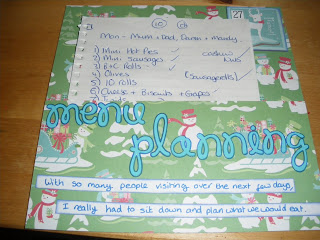 10
27
Mon - Mum + Dad, Daren + Mandy
1) Mini Hot Pies
cashew
2) Mini Sausages
nuts
3) B+C Rolls -
4) Olives
5) 10 rolls
6) Cheese + Biscuits + Grapes
menu
planning
With so many people visiting over the next few days,
I really had to sit down and plan what we would eat.